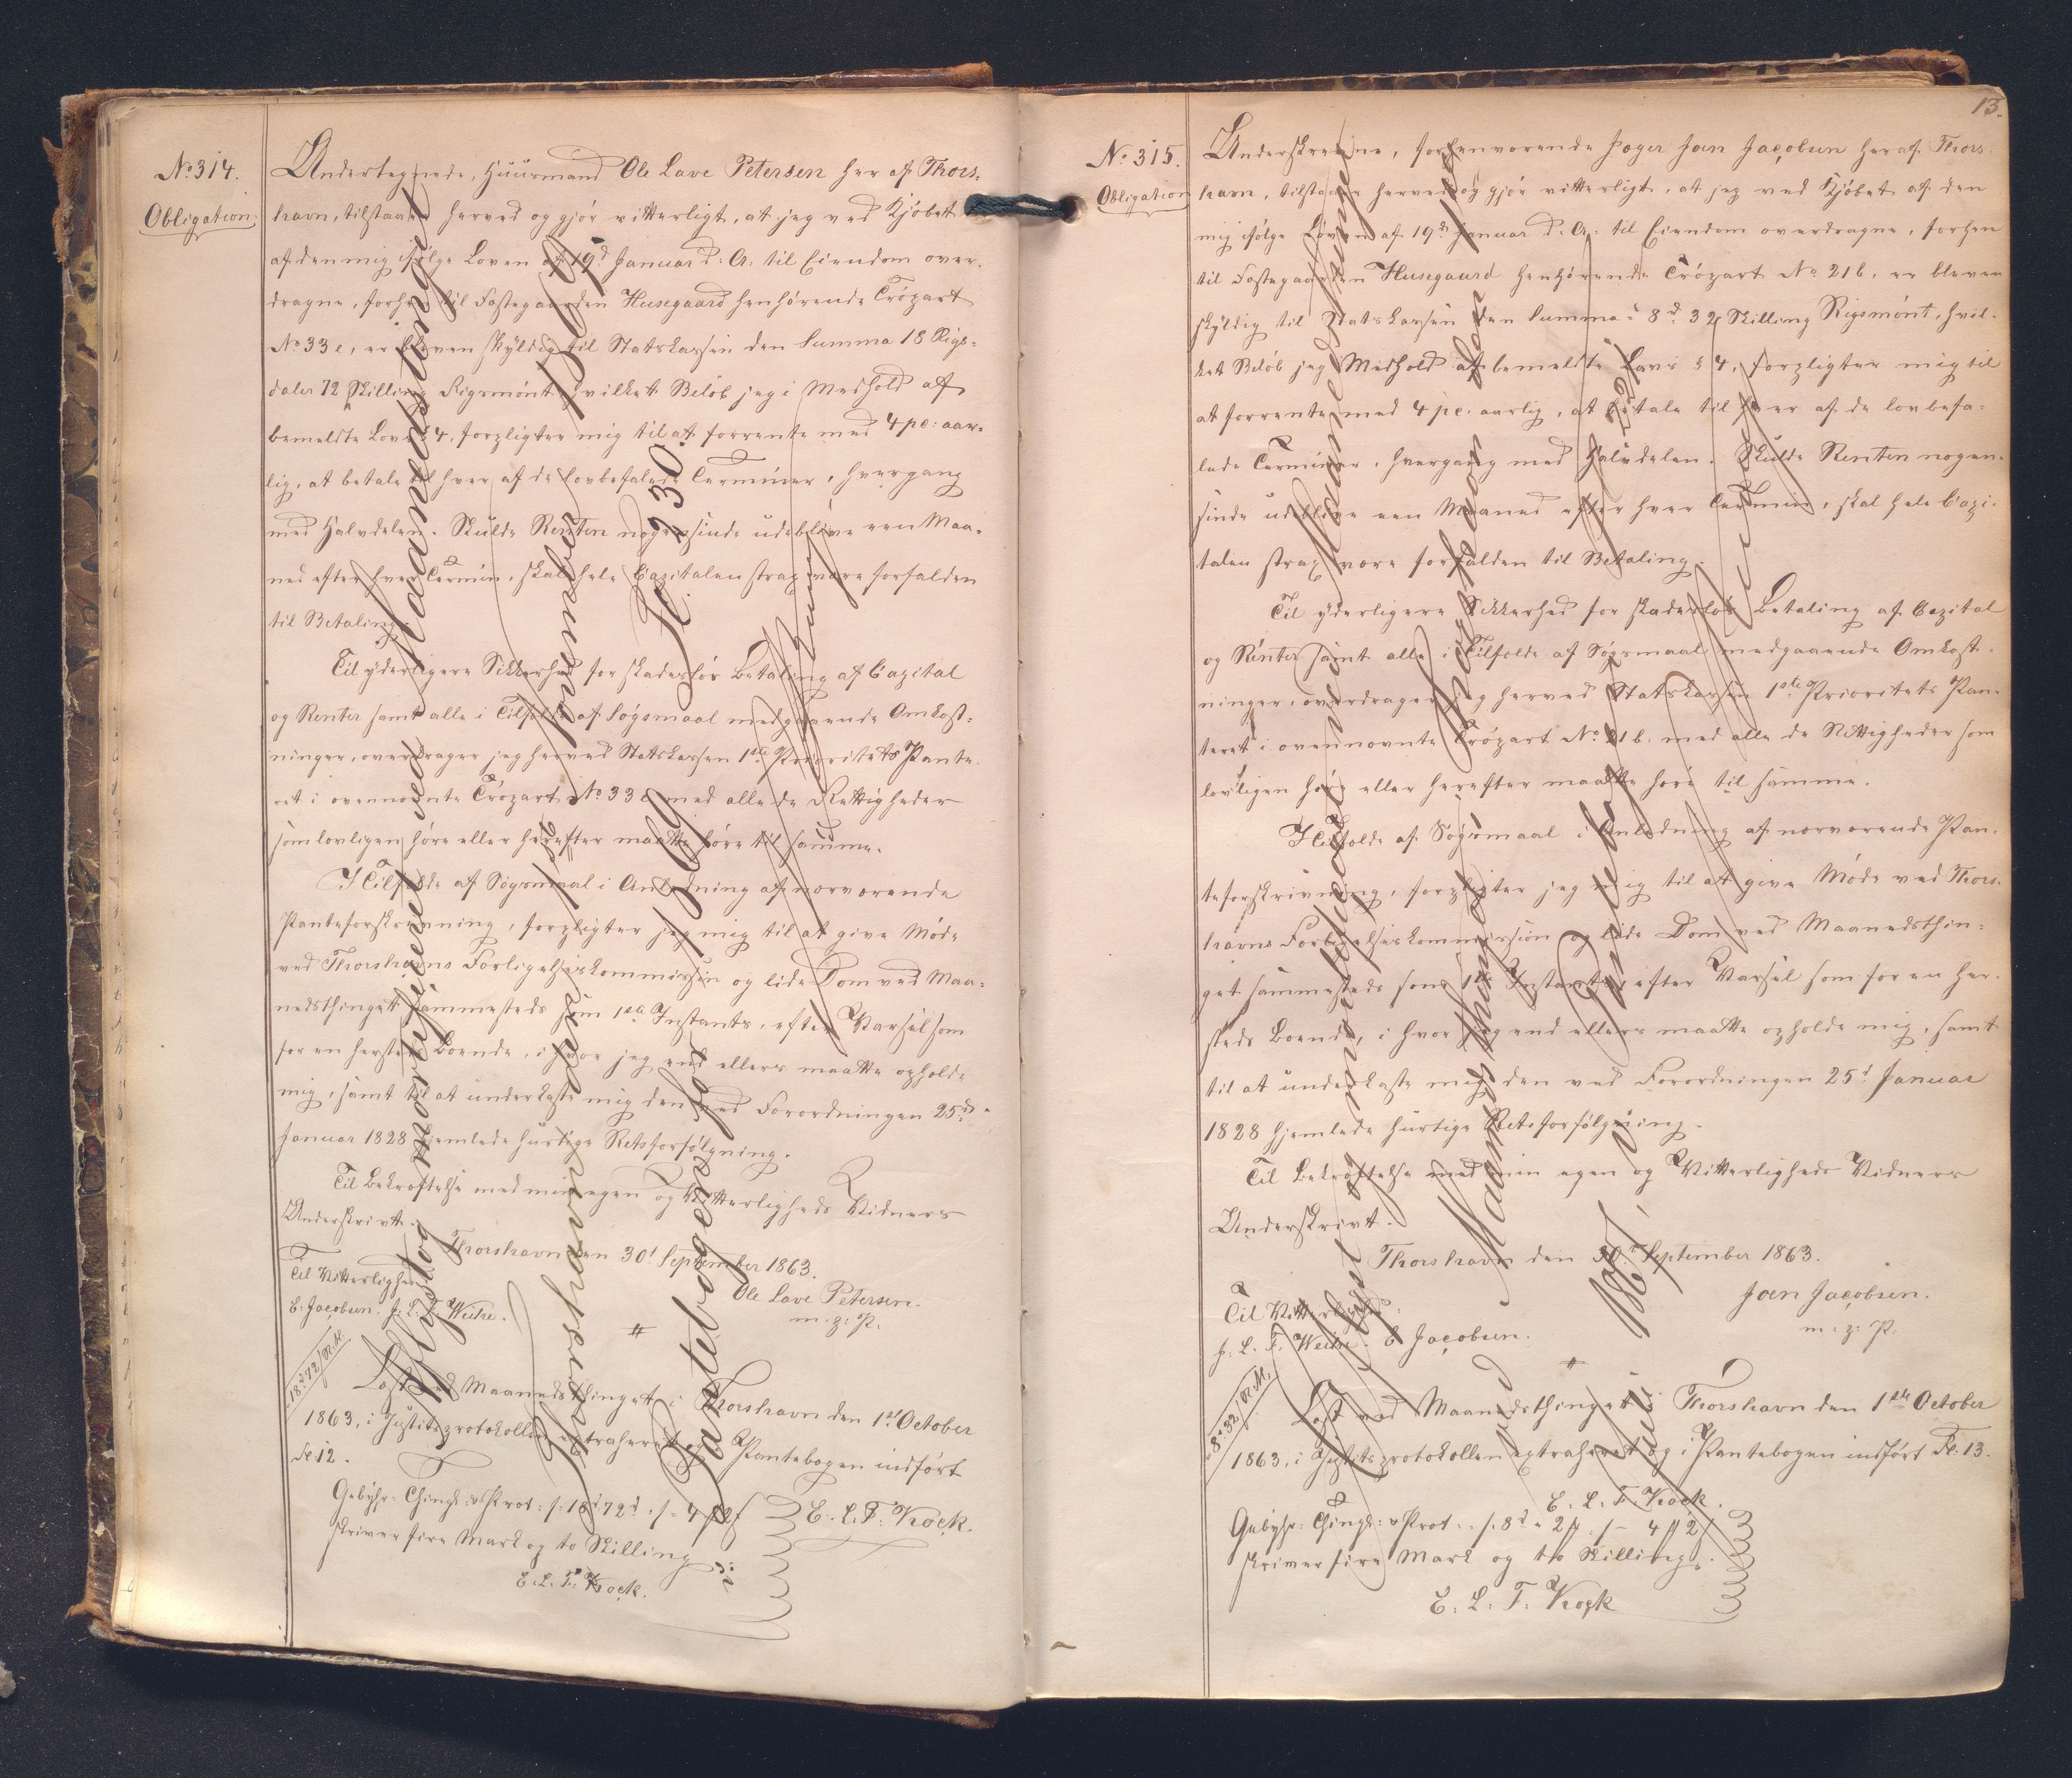 No 314.
Obligation.
Undertegnede, Huusmand Ole Lave Petersen her af Thors-
havn, tilstaaer herved og gjör vitterligt, at jeg ved Kjöbet
af den mig ifölge Loven af 19d Januar d: A: til Eiendom over-
dragne, forhen til Festegaarden Husegaard henhörende Tröpart
No 33 e, er bleven skyldig til Statskassen den Summa 18 Rigs-
daler 72 Skilling Rigsmönt, hvilket Belöb jeg i Medhold af
bemeldte Lovs § 4, forpligter mig til at forrente med 4 pc: aar-
lig, at betale til hver af de lovbefalede Terminer, hvergang
med Halvdelen. Skulde Renten nogensinde udeblive een Maa-
ned efter hver Termin, skal hele Capitalen strax være forfalden
til Betaling.
Til yderligere Sikkerhed for skadeslös Betaling af Capital
og Renter samt alle i Tilfælde af Sögsmaal medgaaende Omkost-
ninger, overdrager jeg herved Statskassen 1ste Prioritets Pante-
ret i ovennævnte Tröpart No 33 e med alle de Rettigheder
som lovligen höre eller herefter maatte höre til samme.
I Tilfælde af Sögsmaal i Anledning af nærværende
Panteforskrivning, forpligter jeg mig til at give Möde
ved Thorshavns Forligelseskommission og lide Dom ved Maa-
nedsthinget sammesteds som 1ste Instants, efter Varsel som
for en hersteds Boende, i hvor jeg end ellers maatte opholde
mig, samt til at underkaste mig den ved Forordningen 25d
Januar 1828 hjemlede hurtige Retsforfölgning.
Til Bekræftelse med min egen og Vitterligheds Vidners
Underskrivt.
Thorshavn den 30d September 1863.
Til Vitterlighed
Ole Lave Petersen.
E. Jacobsen. J. L. F. Weihe.
m. p: P.
18 rd 72 / R.M.
Læst ved Maanedsthinget i Thorshavn den 1ste October
1863, i Justitsprotokollen extraheret og i Pantebogen indfört
Fo 12.
Gebyhr: Thingl: & Prot:
E. L. F: Kock.
skriver fire Mark og to Skilling
E. L. F: Kock.
Aflyst og mortificeret ved Maanedsthinget i
Thorshavn den 18 November 1869
Pantebogen Fol. 230.
13.
No 315.
Obligation
Underskrevne, forhenværende Joen Jacobsen her af Thors-
havn, tilstaaer herved og gjör vitterligt, at jeg ved Kjöbet af den
mig ifölge Loven af 19d Januar d: A: til Eiendom overdragne, forhen
til Festegaarden Husegaard henhörende Tröpart No 21 b, er bleven
skyldig til Statskassen den Summa 8 rd 32 Skilling Rigsmönt, hvil-
ket Belöb jeg i Medhold af bemeldte Lovs § 4, forpligter mig til
at forrente med 4 pc. aarlig, at betale til hver af de lovbefa-
lede Terminer, hvergang med Halvdelen. Skulde Renten nogen-
sinde udeblive een Maaned efter hver Termin, skal hele Capi-
talen strax være forfalden til Betaling.
Til yderligere Sikkerhed for skadeslös Betaling af Capital
og Renter samt alle i Tilfælde af Sögsmaal medgaaende Omkost-
ninger, overdrager jeg herved Statskassen 1ste Prioritets Pan-
teret i ovennævnte Tröpart No 21 b. med alle de Rettigheder som
lovligen höre eller herefter maatte höre til samme.
I Tilfælde af Sögsmaal i Anledning af nærværende Pan-
teforskrivning, forpligter jeg mig til at give Möde ved Thors-
havns Forligelseskommission og lide Dom ved Maanedsthin-
get sammesteds som 1ste Instants, efter Varsel som for en her-
steds Boende, i hvor jeg end ellers maatte opholde mig, samt
til at underkaste mig den ved Forordningen 25d Januar
1828 hjemlede hurtige Retsforfölgning.
Til Bekræftelse med min egen og Vitterligheds Vidners
Underskrivt.
Thorshavn den 30d September 1863.
Til Vitterlighed:
Joen Jacobsen.
J. L. F. Weihe. E Jacobsen.
m: p: P.
8 rd 32 / R.M.
Læst ved Maanedsthinget i Thorshavn den 1ste October
1863, i Justitsprotokollen extraheret og i Pantebogen indfört Fo 13.
E. L. F. Kock.
Gebyhr: Thingl: & Prot:
skriver fire Mark og to Skilling.
E: L: F: Kock
Aflyst og mortificeret ved
Maanedsthinget i Thorshavn den